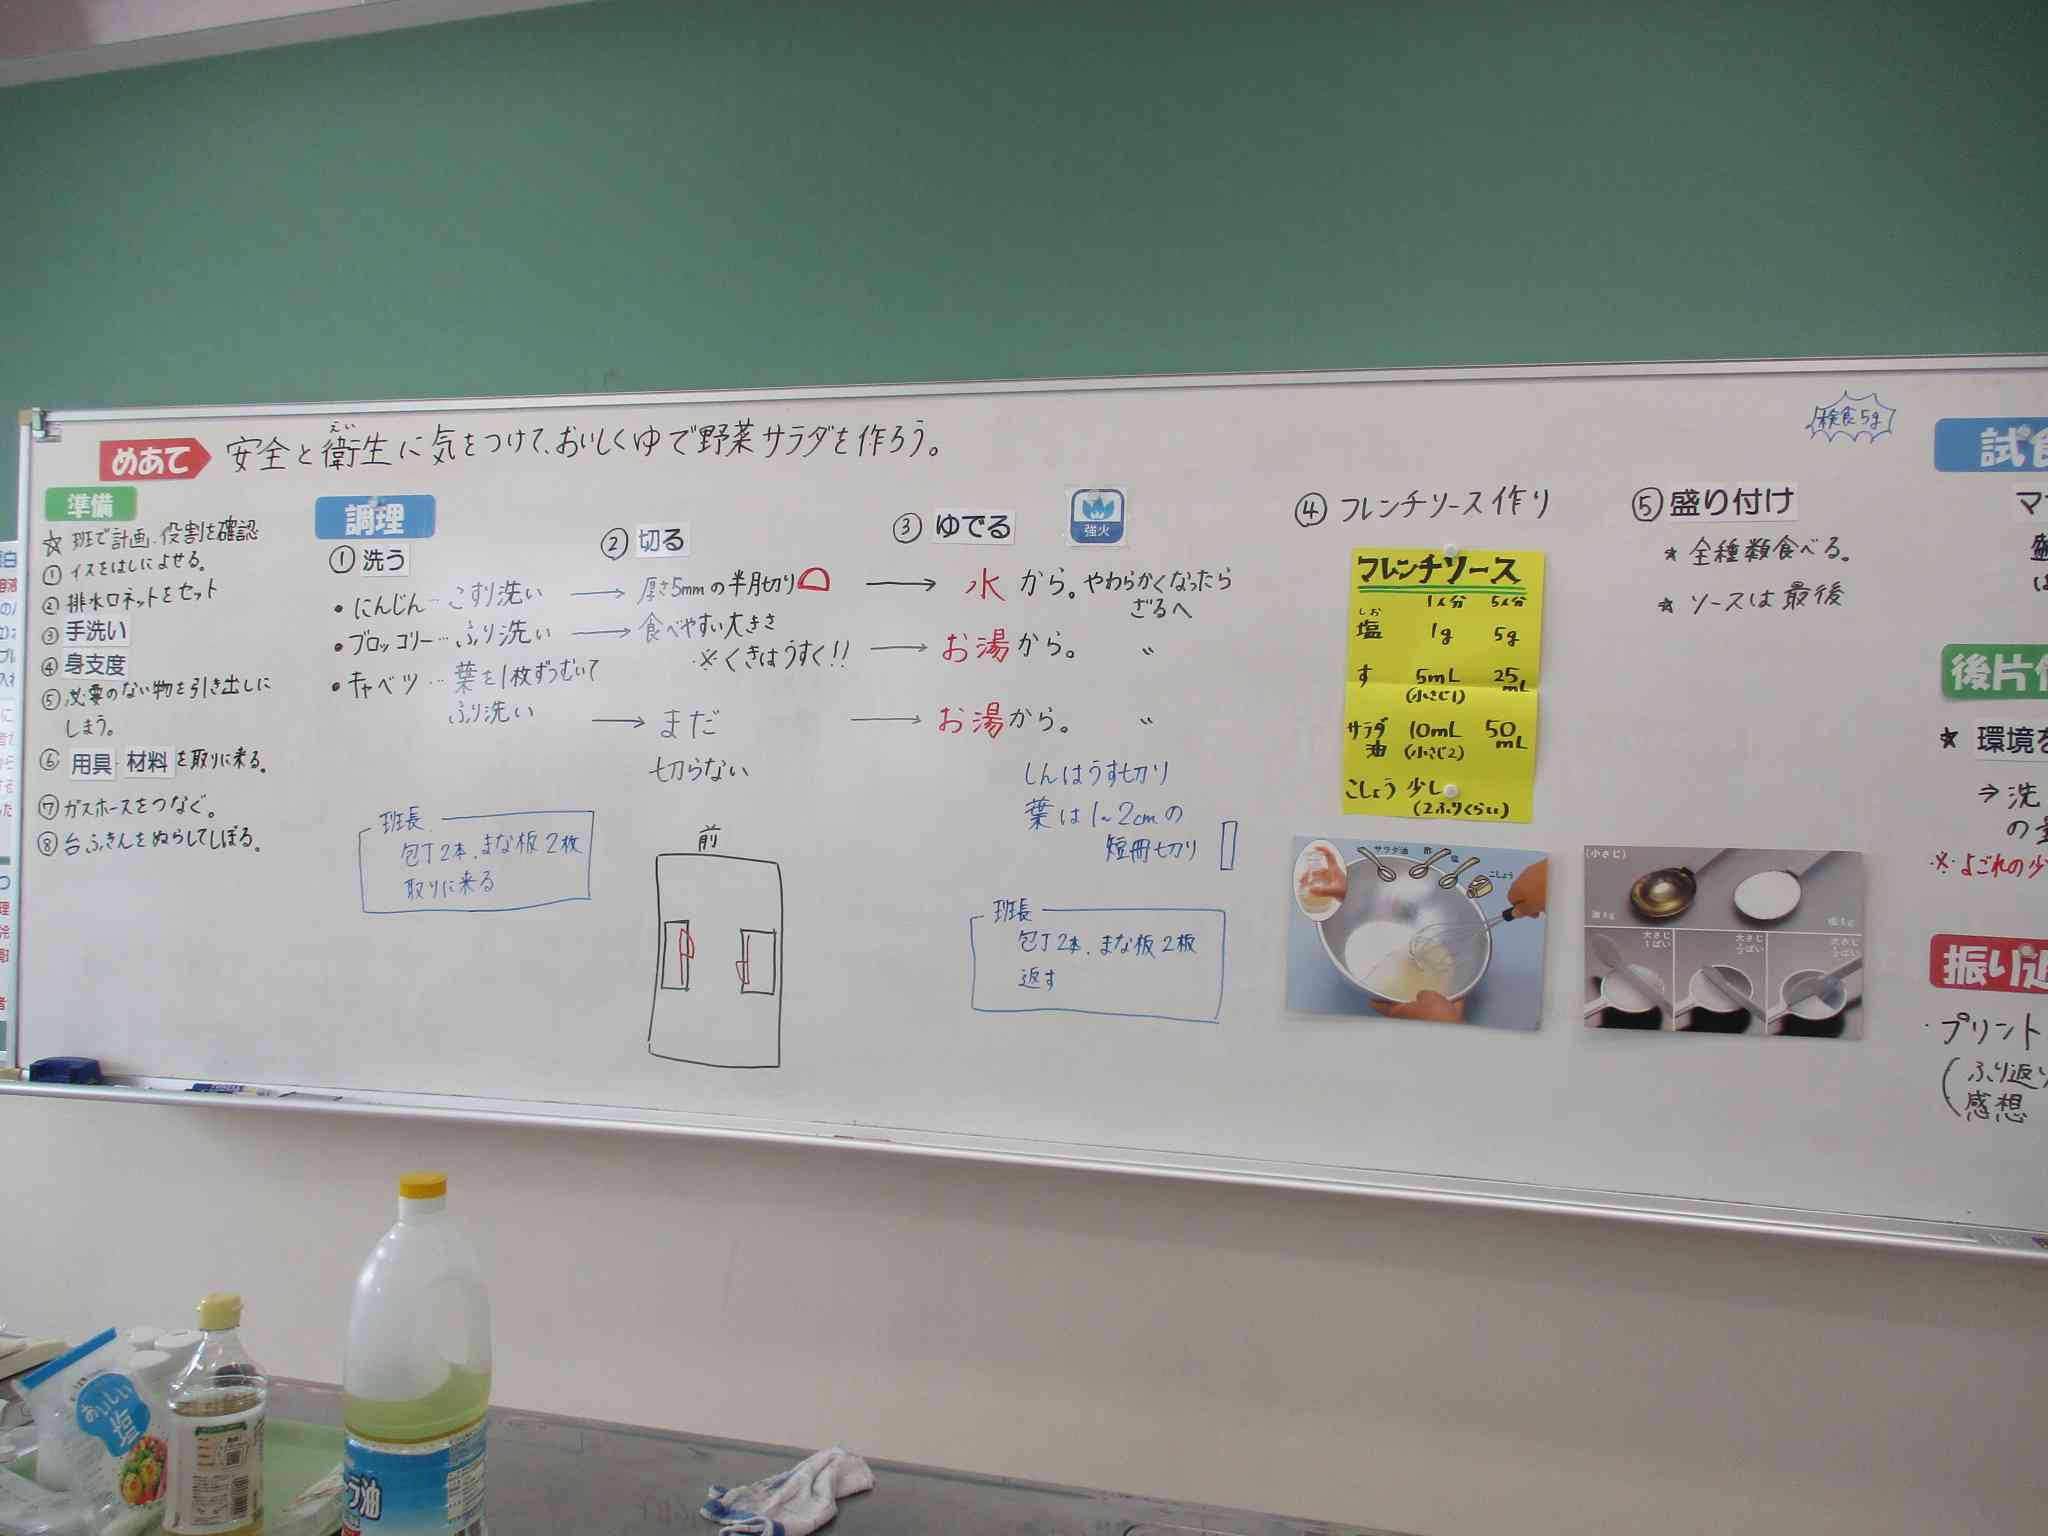 めあて 安全と衛生に気をつけて、おいしくゆで野菜サラダを作ろう。
えい
検食5g
準備
☆ 班で計画、役割を確認
① イスをはしによせる。
② 排水口ネットをセット
③ 手洗い
④ 身支度
⑤ 必要のない物を引き出しに
しまう。
⑥ 用具・材料を取りに来る。
⑦ ガスホースをつなぐ。
⑧ 台ふきんをぬらしてしぼる。
調理
① 洗う
・にんじん…こすり洗い
・ブロッコリー…ふり洗い
・キャベツ…葉を1枚ずつむいて
ふり洗い
班長
包丁2本、まな板2枚
取りに来る
② 切る
→ 厚さ5mmの半月切り
→ 食べやすい大きさ
※くきはうすく!!
→ まだ
切らない
前
③ ゆでる
強火
→ 水から。やわらかくなったら
ざるへ
→ お湯から。 〃
→ お湯から。 〃
しんはうす切り
葉は1~2cmの
短冊切り
班長
包丁2本、まな板2板
返す
④ フレンチソース作り
フレンチソース
1人分 5人分
しお
塩 1g 5g
す 5mL 25mL
(小さじ1)
サラダ油 10mL 50mL
(小さじ2)
こしょう 少し
(2ふりくらい)
サラダ油 酢 塩 こしょう
⑤ 盛り付け
★ 全種類食べる。
★ ソースは最後
(小さじ)
油4g 塩6g
大さじ
1ぱい
大さじ
大さじ
試食
マ
後片付
★ 環境を
⇒ 洗
の
※よごれの少
振り返
・プリント
(ふり返り
感想
おいしい
塩
ラダ油